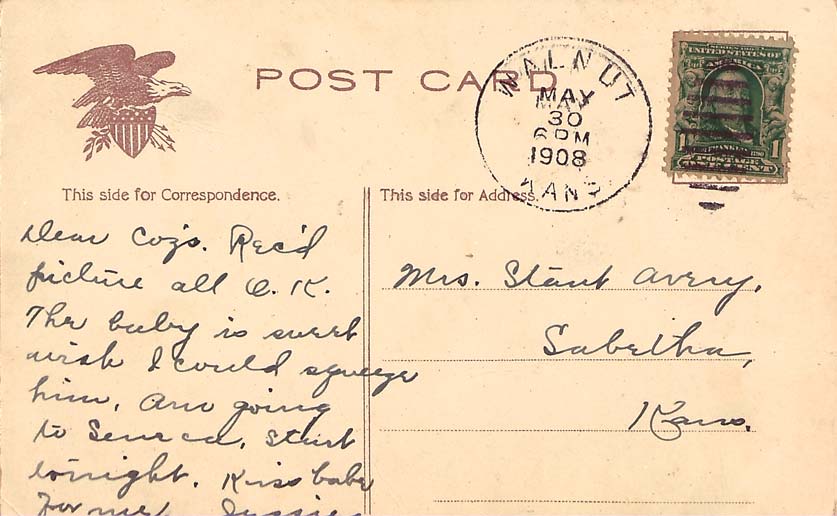 POST CARD
WALNUT
MAY
30
6 PM
1908
KANS.
SERIES 1902
AMERICA
FRANKLIN
1 1
This side for Correspondence.
This side for Address.
Dear Cozs. Rec'd
picture all O.K.
The baby is sweet
wish I could squeeze
him. Am going
to Seneca, start
tonight. Kiss babe
for me. Jessie
Mrs. Stant Avery,
Sabetha,
Kans.